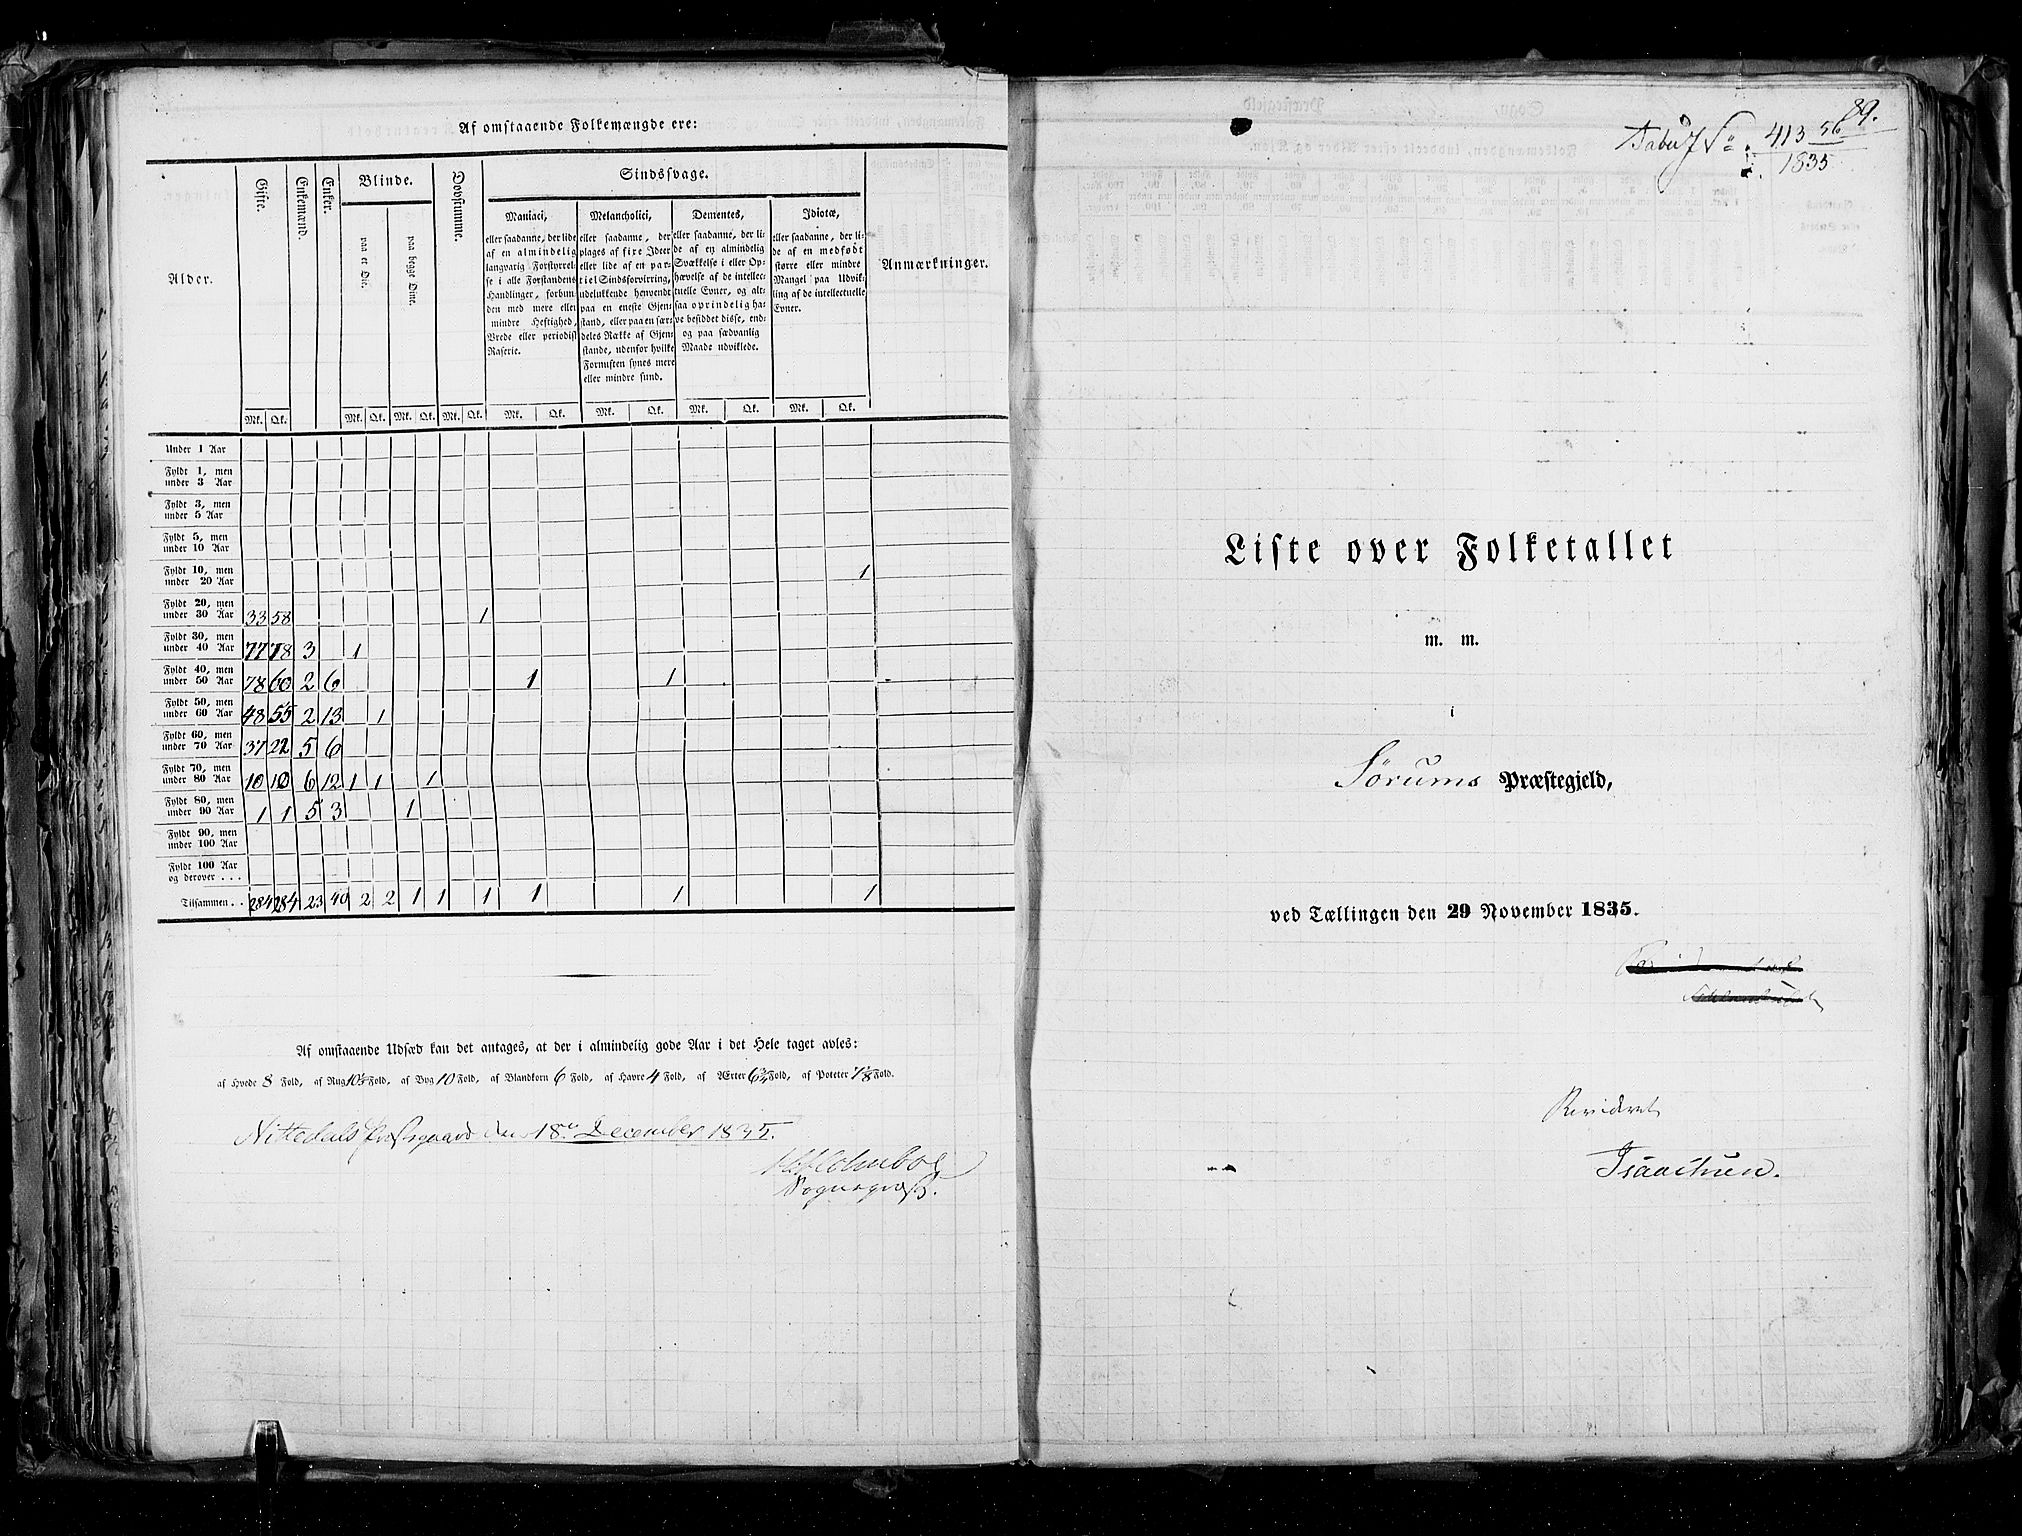 Af omstaaende Folkemængde ere:
Alder. Gifte. Enkemænd. Enker. Blinde. Døvstumme. Sindssvage. Anmærkninger.
paa et Øie. paa begge Øine.
Maniaci,
eller saadanne, der lide
af en almindelig
langvarig Forstyrrel-
se i alle Forstandens
Handlinger, forbun-
den med mere eller
mindre Heftighed,
Vrede eller periodisk
Raserie.
Melancholici,
eller saadanne, der
plages af fixe Ideer
eller lide af en par-
tiel Sindsforvirring,
udelukkende henvendt
paa en eneste Gjen-
stand, eller paa en sær-
deles Række af Gjen-
stande, udenfor hvilke
Fornuften synes mere
eller mindre sund.
Dementes,
eller saadanne, der li-
de af en almindelig
Svækkelse i eller Op-
hævelse af de intellec-
tuelle Evner, og alt-
saa oprindelig ha-
ve besiddet disse, end-
og paa sædvanlig
Maade udviklede.
Idiotæ,
eller saadanne, der li-
de af en medfødt
større eller mindre
Mangel paa Udvik-
ling af de intellectuelle
Evner.
Mk. Qk. Mk. Qk. Mk. Qk. Mk. Qk. Mk. Qk. Mk. Qk. Mk. Qk. Mk. Qk.
Under 1 Aar
Fyldt 1, men
under 3 Aar
Fyldt 3, men
under 5 Aar
Fyldt 5, men
under 10 Aar
Fyldt 10, men
under 20 Aar 1
Fyldt 20, men
under 30 Aar 33 58 1
Fyldt 30, men
under 40 Aar 77 78 3 1
Fyldt 40, men
under 50 Aar 78 60 2 6 1 1
Fyldt 50, men
under 60 Aar 48 55 2 13 1
Fyldt 60, men
under 70 Aar 37 22 5 6
Fyldt 70, men
under 80 Aar 10 10 6 12 1 1 1
Fyldt 80, men
under 90 Aar 1 1 5 3 1
Fyldt 90, men
under 100 Aar
Fyldt 100 Aar
og derover . . .
Tilsammen . . 284 284 23 40 2 2 1 1 1 1 1 1
Af omstaaende Udsæd kan det antages, at der i almindelig gode Aar i det Hele taget avles:
af Hvede 8 Fold, af Rug 10½ Fold, af Byg 10 Fold, af Blandkorn 6 Fold, af Havre 4 Fold, af Ærter 6¾ Fold, af Poteter Fold.
Nittedals Præstegaard den 18de December 1835.
Holmboe
Sognepræst.
89.
413 56
1835
Liste over Folketallet
m. m.
i
Sørums Præstegjeld,
ved Tællingen den 29 November 1835.
Revideret
Isaachsen.